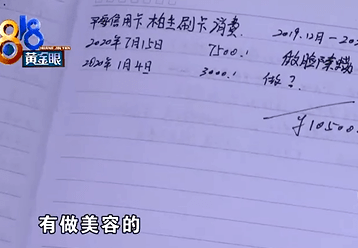 818
黄金眼
平安信用卡 柏圭刷卡消费
2019.12月-202
2020年7月15日 7500.
2020年1月4日 3000.
做脸除螨
做?
¥10500
有做美容的